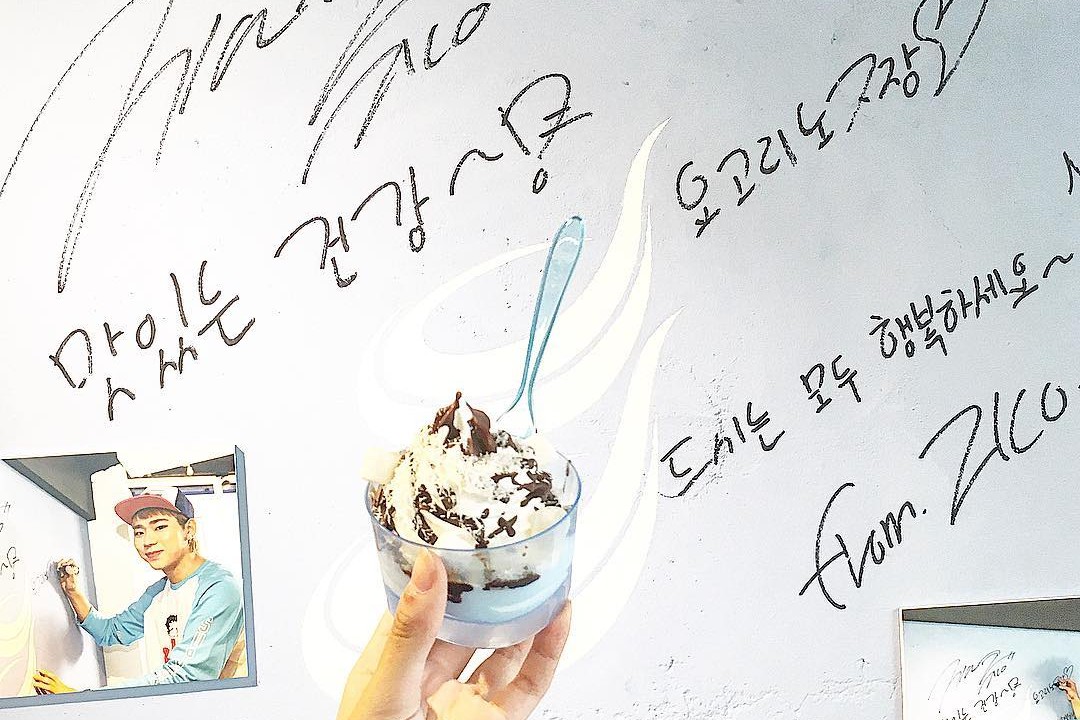 Zico
맛있는 건강~
요고리노 짱♡
드시는 모두 행복하세요~
from. ZICO